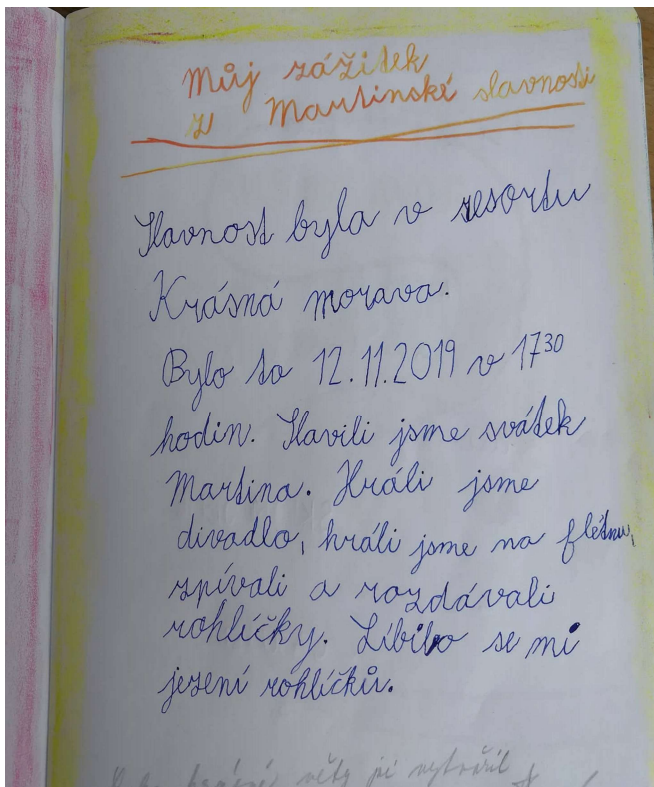 Můj zážitek
z Martinské slavnosti
Slavnost byla v resortu
Krásná morava.
Bylo to 12.11.2019 v 17³⁰
hodin. Slavili jsme svátek
Martina. Hráli jsme
divadlo, hráli jsme na flétnu,
zpívali a rozdávali
rohlíčky. Líbilo se mi
jezení rohlíčků.
věty jsi vytvořil